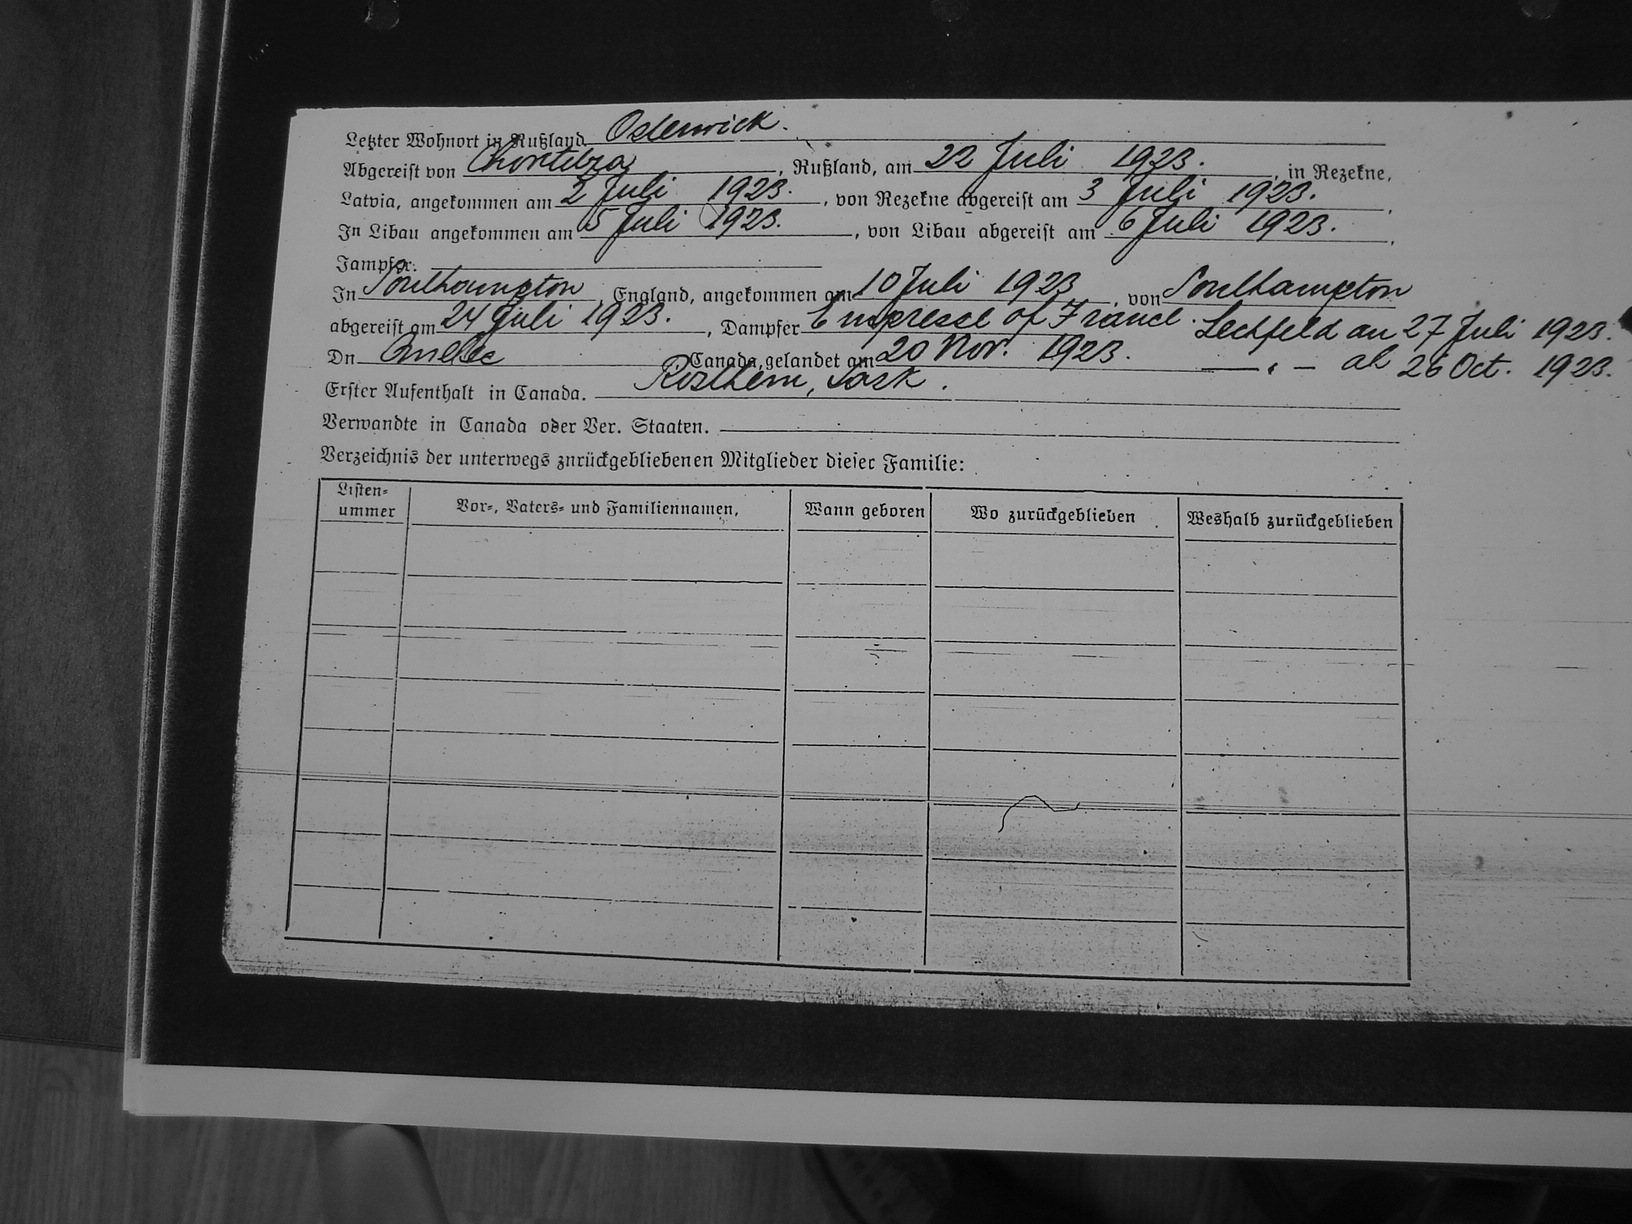 Letzter Wohnort in Rußland Osterwick.
Abgereist von Chortitza, Rußland, am 22 Juli 1923. in Rezekne,
Latvia, angekommen am 2 Juli 1923., von Rezekne abgereist am 3 Juli 1923.
In Libau angekommen am 5 Juli 1923., von Libau abgereist am 6 Juli 1923.
Jampfer.
In Southampton, England, angekommen am 10 Juli 1923, von Southampton
abgereist am 24 Juli 1923., Dampfer Empress of France. Lechfeld an 27 Juli 1923.
Dn Quebec Canada, gelandet am 20 Nov. 1923. — " — ab 26 Oct. 1923.
Erster Aufenthalt in Canada. Rosthern, Sask.
Verwandte in Canada oder Ver. Staaten.
Verzeichnis der unterwegs zurückgebliebenen Mitglieder dieser Familie:
Listen-
ummer
Vor-, Vaters- und Familiennamen, Wann geboren Wo zurückgeblieben Weshalb zurückgeblieben